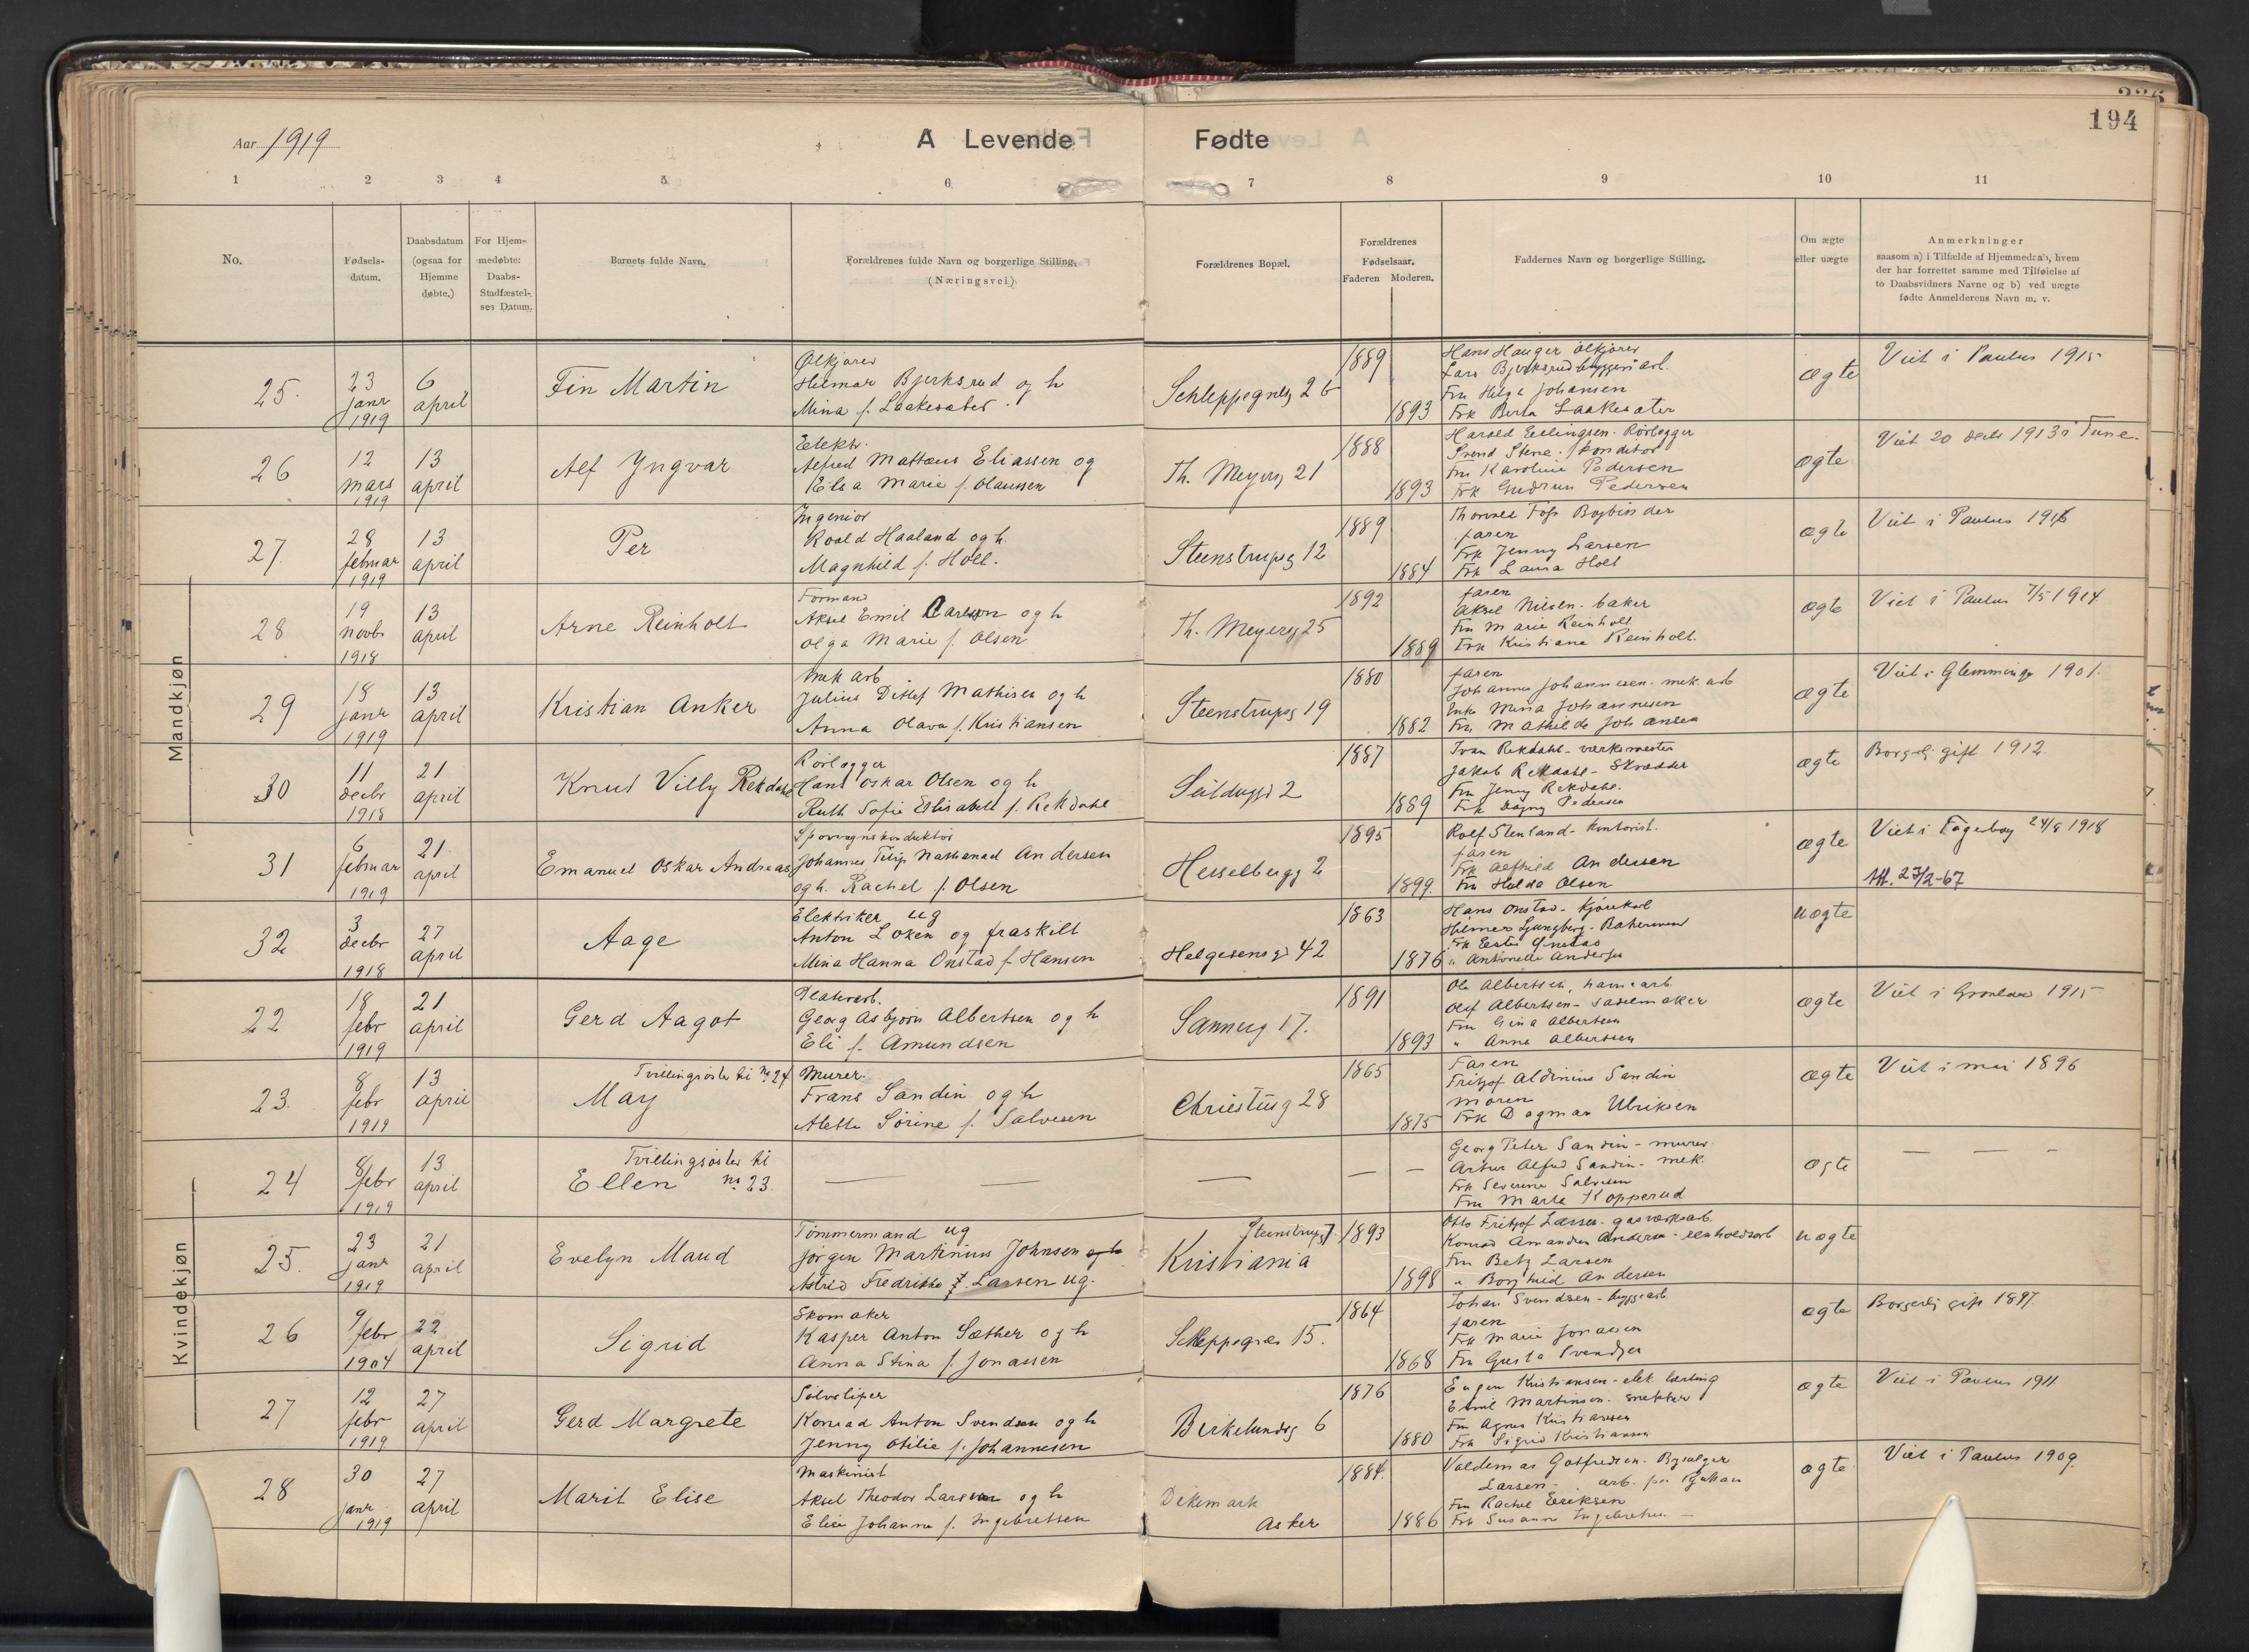 194
Aar 1919
A Levende Fødte
1 2 3 4 5 6 7 8 9 10 11
No.
Fødsels-
datum.
Daabsdatum
(ogsaa for
Hjemme
døbte.)
For Hjem-
medøbte:
Daabs-
Stadfæstel-
ses Datum.
Barnets fulde Navn.
Forældrenes fulde Navn og borgerlige Stilling.
(Næringsvei)
Forældrenes Bopæl.
Forældrenes
Fødselsaar.
Faderen Moderen.
Faddernes Navn og borgerlige Stilling.
Om ægte
eller uægte
Anmerkninger
saasom a) i Tilfælde af Hjemmedaab, hvem
der har forrettet samme med Tilføielse af
to Daabsvidners Navne og b) ved uægte
fødte Anmelderens Navn m. v.
Mandkjøn
25.
23
janr
1919
6
april
Fin Martin
Ølkjører
Hilmar Bjerksrud og h
Mina f. Laakesæter
Schleppegrelsg 26
1889
1893
Hans Hauger ølkjører
Lars Bjerksrud byggeriarb.
Fru Helga Johansen
Frk Berta Laakesæter
ægte
Viet i Paulus 1915
26
12
mars
1919
13
april
Alf Yngvar
Elektr.
Alfred Mattæus Eliassen og
Elsa Marie f. Olaussen
Th. Meyersg 21
1888
1893
Harald Erlingsen - Rørlægger
Svend Stene - Konditor
Fru Karoline Pedersen
Frk Gudrun Pedersen
ægte
Viet 20 decb 1913 i Tune.
27.
28
februar
1919
13
april
Per
Ingeniør
Roald Haaland og h.
Magnhild f. Holt.
Steenstrupsg 12
1889
1884
Thorvald Foss Bogbinder
faren
Frk Jenny Larsen
Frk Laura Holt
ægte
Viet i Paulus 1916
28
19
novbr
1918
13
april
Arne Reinholt
Formand
Aksel Emil Carlson og h
Olga Marie f. Olsen
Th. Meyersg 25
1892
1889
faren
Aksel Nilsen - baker
Fru Marie Reinholt
Frk Kristiane Reinholt.
ægte
Viet i Paulus 7/5 1914
29
18
janr
1919
13
april
Kristian Anker
Mek arb.
Julius Ditlef Mathisen og h
Anna Olava f. Kristiansen
Steenstrupsg 19
1880
1882
faren
Johannes Johannesen - mek. arb
Enke Mina Johannesen
Fru Mathilde Johansen
ægte
Viet i Glemminge 1901.
30
11
decbr
1918
21
april
Knud Villy Rekdahl
Rørlægger
Hans Oskar Olsen og h
Ruth Sofie Elisabeth f. Rekdahl
Seildugsg 2
1887
1889
Ivar Rekdahl - værksmester
Jakob Rekdahl - Skrædder
Fru Jenny Rekdahl.
Frk Dagny Pedersen
ægte
Borgelig gift 1912.
31
6
februar
1919
21
april
Emanuel Oskar Andreas
Sporvognskonduktør
Johannes Filip Nathanael Andersen
og h. Rachel f. Olsen
Hesselbergg 2
1895
1899.
Rolf Stenland - Kontorist.
faren
Frk Alfhild Andersen
Fru Hulda Olsen
ægte
Viet i Fagerborg 24/8 1918
Utt. 27/2-67
32
3
decbr
1918
27
april
Aage
Elektriker ug
Anton Loken og fraskilt
Mina Hanna Onstad f Hansen
Helgesensg 42
1863
1876
Hans Onstad - Kjørekarl
Hilmer Ljungberg - Bakersvend
Frk Ester Onstad
" Antonette Andersen
uægte
Kvindekjøn
22
18
febr
1919
21
april
Gerd Aagot
Platearb.
Georg Asbjørn Albertsen og h
Eli f. Amundsen
Sannerg 17.
1891
1893
Ole Albertsen, havnearb
Olef Albertsen - sadelmaker
Fru Gina Albertsen
" Anna Albertsen
ægte
Viet i Grønland 1915
23.
8
febr
1919
13
april
Tvillingsøster til no 24
May
Murer.
Frans Sandin og h
Alette Sørine f. Salvesen
Christiesg 28
1865
1875
Faren
Fritjof Aldinius Sandin
moren
Frk Dagmar Ulriksen
ægte
Viet i mai 1896
24
8
febr
1919
13
april
Tvillingsøster til
Ellen no 23.
Georg Peter Sandin - murer
Artur Alfred Sandin - mek.
Frk Severine Salvesen
Fru Marta Kopperud
ægte
25.
23
janr
1919
21
april
Evelyn Maud
Tømmermand ug
Jørgen Martinius Johnsen og h
Astrid Fredrikke f. Larsen ug.
Steenstrupsg 7.
Kristiania
1893
1898
Otto Fritjof Larsen - gasværksarb.
Konrad Amandus Andersen - renholdsarb
Fru Betzy Larsen
" Borghild Andersen
uægte
26
9
febr
1904
22
april
Sigrid
Skomaker
Kasper Anton Sæther og h
Anna Stina f. Jonassen
Schleppegrels 15.
1864
1868
Johan Svendsen - byggearb
faren
Frk Marie Jonassen
Fru Gusta Svendsen
ægte
Borgerlig gift 1897.
27
12
febr
1919
27
april
Gerd Margrete
Sølvsliper
Konrad Anton Svendsen og h
Jenny Otilie f. Johannesen
Birkelundsg 6
1876
1880
Eugen Kristiansen - elek. lærling
Emil Martinsen - snekker
Fru Agnes Kristiansen
Frk Sigrid Kristiansen
ægte
Viet i Paulus 1911.
28
30
janr
1919
27
april
Marit Elise
Maskinist
Aksel Theodor Larsen og h
Elise Johanne f. Ingebretsen
Dikemark
Asker
1884.
1886
Valdemar Gotfredsen -
Larsen - arb.
Fru Rachel Eriksen
Frk Susanne Ingebretsen
ægte
Viet i Paulus 1909.